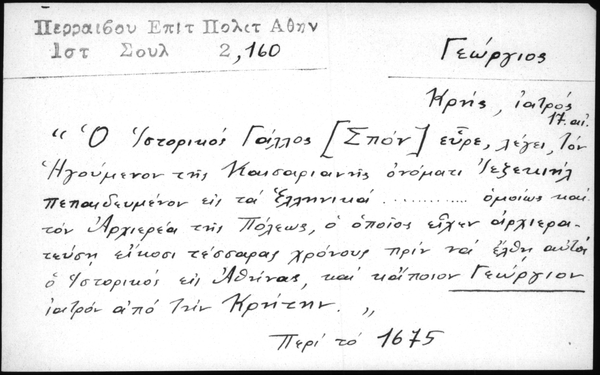 Περραιβου Επιτ Πολιτ Αθην
Ιστ Σουλ 2,160
Γεώργιος
Κρής, ἰατρός
17. αἰ.
"Ὁ Ἱστορικός Γάλλος [Σπόν] εὗρε, λέγει, τόν
Ἡγούμενον τῆς Καισαριανῆς ὀνόματι Ἰεζεκιήλ
πεπαιδευμένον εἰς τά Ἑλληνικά ............. ὁμοίως καί
τόν Ἀρχιερέα τῆς Πόλεως, ὁ ὁποῖος εἶχεν ἀρχιερα-
τεύσῃ εἴκοσι τέσσαρας χρόνους πρίν νά ἔλθῃ αὐτός
ὁ Ἱστορικός εἰς Ἀθήνας, καί κάποιον Γεώργιον
ἰατρόν ἀπό τήν Κρήτην."
Περί τό 1675